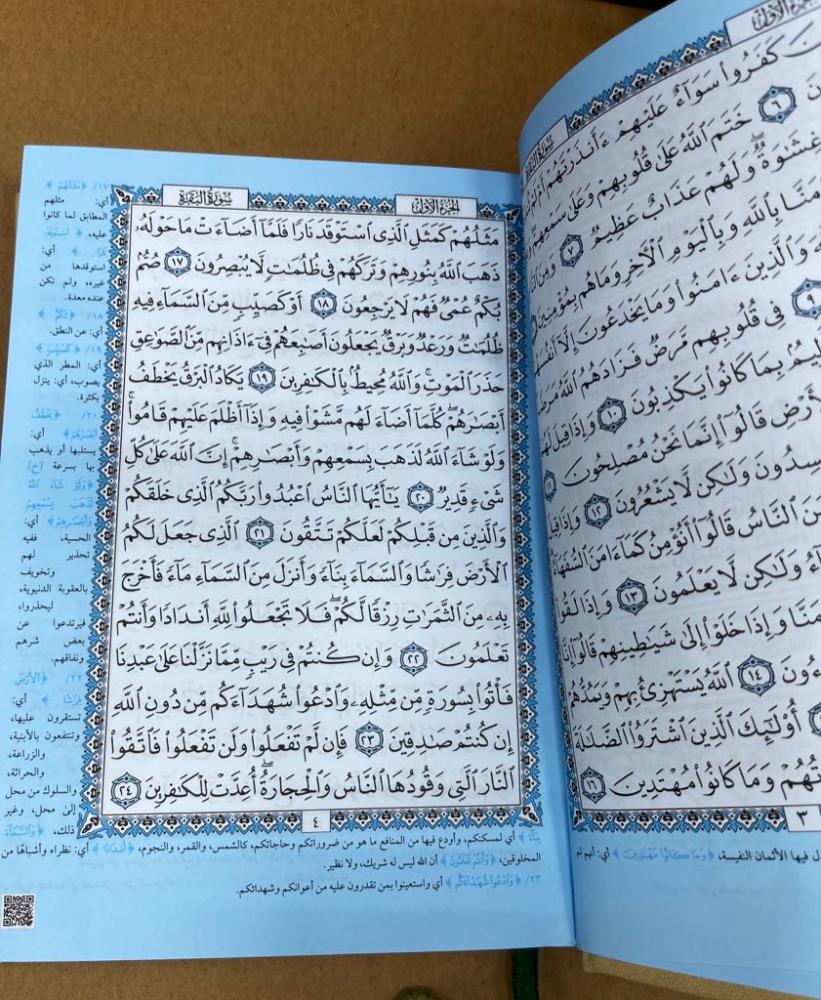 الجزء الأول
سورة البقرة
كَفَرُوا۟ سَوَآءٌ عَلَيْهِمْ ءَأَنذَرْتَهُمْ أَمْ لَمْ
٦ خَتَمَ ٱللَّهُ عَلَىٰ قُلُوبِهِمْ وَعَلَىٰ سَمْعِهِمْ
غِشَٰوَةٌ وَلَهُمْ عَذَابٌ عَظِيمٌ ٧ وَمِنَ
بِٱللَّهِ وَبِٱلْيَوْمِ ٱلْءَاخِرِ وَمَا هُم بِمُؤْمِنِينَ
وَٱلَّذِينَ ءَامَنُوا۟ وَمَا يَخْدَعُونَ إِلَّآ
٩ فِى قُلُوبِهِم مَّرَضٌ فَزَادَهُمُ ٱللَّهُ
بِمَا كَانُوا۟ يَكْذِبُونَ ١٠ وَإِذَا قِيلَ
قَالُوٓا۟ إِنَّمَا نَحْنُ مُصْلِحُونَ ١١
وَلَٰكِن لَّا يَشْعُرُونَ ١٢ وَإِذَا
ٱلنَّاسُ قَالُوٓا۟ أَنُؤْمِنُ كَمَآ ءَامَنَ ٱلسُّفَهَآءُ
وَلَٰكِن لَّا يَعْلَمُونَ ١٣ وَإِذَا لَقُوا۟
وَإِذَا خَلَوْا۟ إِلَىٰ شَيَٰطِينِهِمْ قَالُوٓا۟ إِنَّا
١٤ ٱللَّهُ يَسْتَهْزِئُ بِهِمْ وَيَمُدُّهُمْ
أُو۟لَٰٓئِكَ ٱلَّذِينَ ٱشْتَرَوُا۟ ٱلضَّلَٰلَةَ
وَمَا كَانُوا۟ مُهْتَدِينَ ١٦
٣
فيها الأثمان النفيسة، ﴿وَمَا كَانُوا مُهْتَدِينَ﴾ أي: أنهم لم
الجزء الأول
سورة البقرة
مَثَلُهُمْ كَمَثَلِ ٱلَّذِى ٱسْتَوْقَدَ نَارًا فَلَمَّآ أَضَآءَتْ مَا حَوْلَهُۥ
ذَهَبَ ٱللَّهُ بِنُورِهِمْ وَتَرَكَهُمْ فِى ظُلُمَٰتٍ لَّا يُبْصِرُونَ ١٧ صُمٌّۢ
بُكْمٌ عُمْىٌ فَهُمْ لَا يَرْجِعُونَ ١٨ أَوْ كَصَيِّبٍ مِّنَ ٱلسَّمَآءِ فِيهِ
ظُلُمَٰتٌ وَرَعْدٌ وَبَرْقٌ يَجْعَلُونَ أَصَٰبِعَهُمْ فِىٓ ءَاذَانِهِم مِّنَ ٱلصَّوَٰعِقِ
حَذَرَ ٱلْمَوْتِ ۚ وَٱللَّهُ مُحِيطٌۢ بِٱلْكَٰفِرِينَ ١٩ يَكَادُ ٱلْبَرْقُ يَخْطَفُ
أَبْصَٰرَهُمْ ۖ كُلَّمَآ أَضَآءَ لَهُم مَّشَوْا۟ فِيهِ وَإِذَآ أَظْلَمَ عَلَيْهِمْ قَامُوا۟ ۚ
وَلَوْ شَآءَ ٱللَّهُ لَذَهَبَ بِسَمْعِهِمْ وَأَبْصَٰرِهِمْ ۚ إِنَّ ٱللَّهَ عَلَىٰ كُلِّ
شَىْءٍ قَدِيرٌ ٢٠ يَٰٓأَيُّهَا ٱلنَّاسُ ٱعْبُدُوا۟ رَبَّكُمُ ٱلَّذِى خَلَقَكُمْ
وَٱلَّذِينَ مِن قَبْلِكُمْ لَعَلَّكُمْ تَتَّقُونَ ٢١ ٱلَّذِى جَعَلَ لَكُمُ
ٱلْأَرْضَ فِرَٰشًا وَٱلسَّمَآءَ بِنَآءً وَأَنزَلَ مِنَ ٱلسَّمَآءِ مَآءً فَأَخْرَجَ
بِهِۦ مِنَ ٱلثَّمَرَٰتِ رِزْقًا لَّكُمْ ۖ فَلَا تَجْعَلُوا۟ لِلَّهِ أَندَادًا وَأَنتُمْ
تَعْلَمُونَ ٢٢ وَإِن كُنتُمْ فِى رَيْبٍ مِّمَّا نَزَّلْنَا عَلَىٰ عَبْدِنَا
فَأْتُوا۟ بِسُورَةٍ مِّن مِّثْلِهِۦ وَٱدْعُوا۟ شُهَدَآءَكُم مِّن دُونِ ٱللَّهِ
إِن كُنتُمْ صَٰدِقِينَ ٢٣ فَإِن لَّمْ تَفْعَلُوا۟ وَلَن تَفْعَلُوا۟ فَٱتَّقُوا۟
ٱلنَّارَ ٱلَّتِى وَقُودُهَا ٱلنَّاسُ وَٱلْحِجَارَةُ ۖ أُعِدَّتْ لِلْكَٰفِرِينَ ٢٤
٤
١٧/ ﴿مَثَلُهُمْ﴾
أي: مثلهم
المطابق لما كانوا
عليه، ﴿اسْتَوْقَدَ
أي:
استوقدها من
غيره، ولم تكن
عنده معدة.
١٨/ ﴿بُكْمٌ﴾
أي: عن النطق.
١٩/ ﴿كَصَيِّبٍ﴾
أي: المطر الذي
يصوب، أي: ينزل
بكثرة.
٢٠/ ﴿يَخْطَفُ
أَبْصَارَهُمْ﴾ أي:
يستلبها أو يذهب
بها بسرعة (خ)
﴿وَلَوْ شَاءَ اللَّهُ
لَذَهَبَ بِسَمْعِهِمْ
وَأَبْصَارِهِمْ﴾ أي:
الحسية، ففيه
تحذير لهم
وتخويف
بالعقوبة الدنيوية،
ليحذروا،
فيرتدعوا عن
بعض شرهم
ونفاقهم.
٢٢/ ﴿الْأَرْضَ
فِرَاشًا﴾ أي:
تستقرون عليها،
وتنتفعون بالأبنية،
والزراعة،
والحراثة،
والسلوك من محل
إلى محل، وغير
ذلك، ﴿وَالسَّمَاءَ
بِنَاءً﴾ أي لمسكنكم، وأودع فيها من المنافع ما هو من ضروراتكم وحاجاتكم، كالشمس، والقمر، والنجوم، ﴿أَنْدَادًا﴾ أي: نظراء وأشباهًا من
المخلوقين، ﴿وَأَنْتُمْ تَعْلَمُونَ﴾ أن الله ليس له شريك، ولا نظير.
٢٣/ ﴿وَادْعُوا شُهَدَاءَكُمْ﴾ أي واستعينوا بمن تقدرون عليه من أعوانكم وشهدائكم.